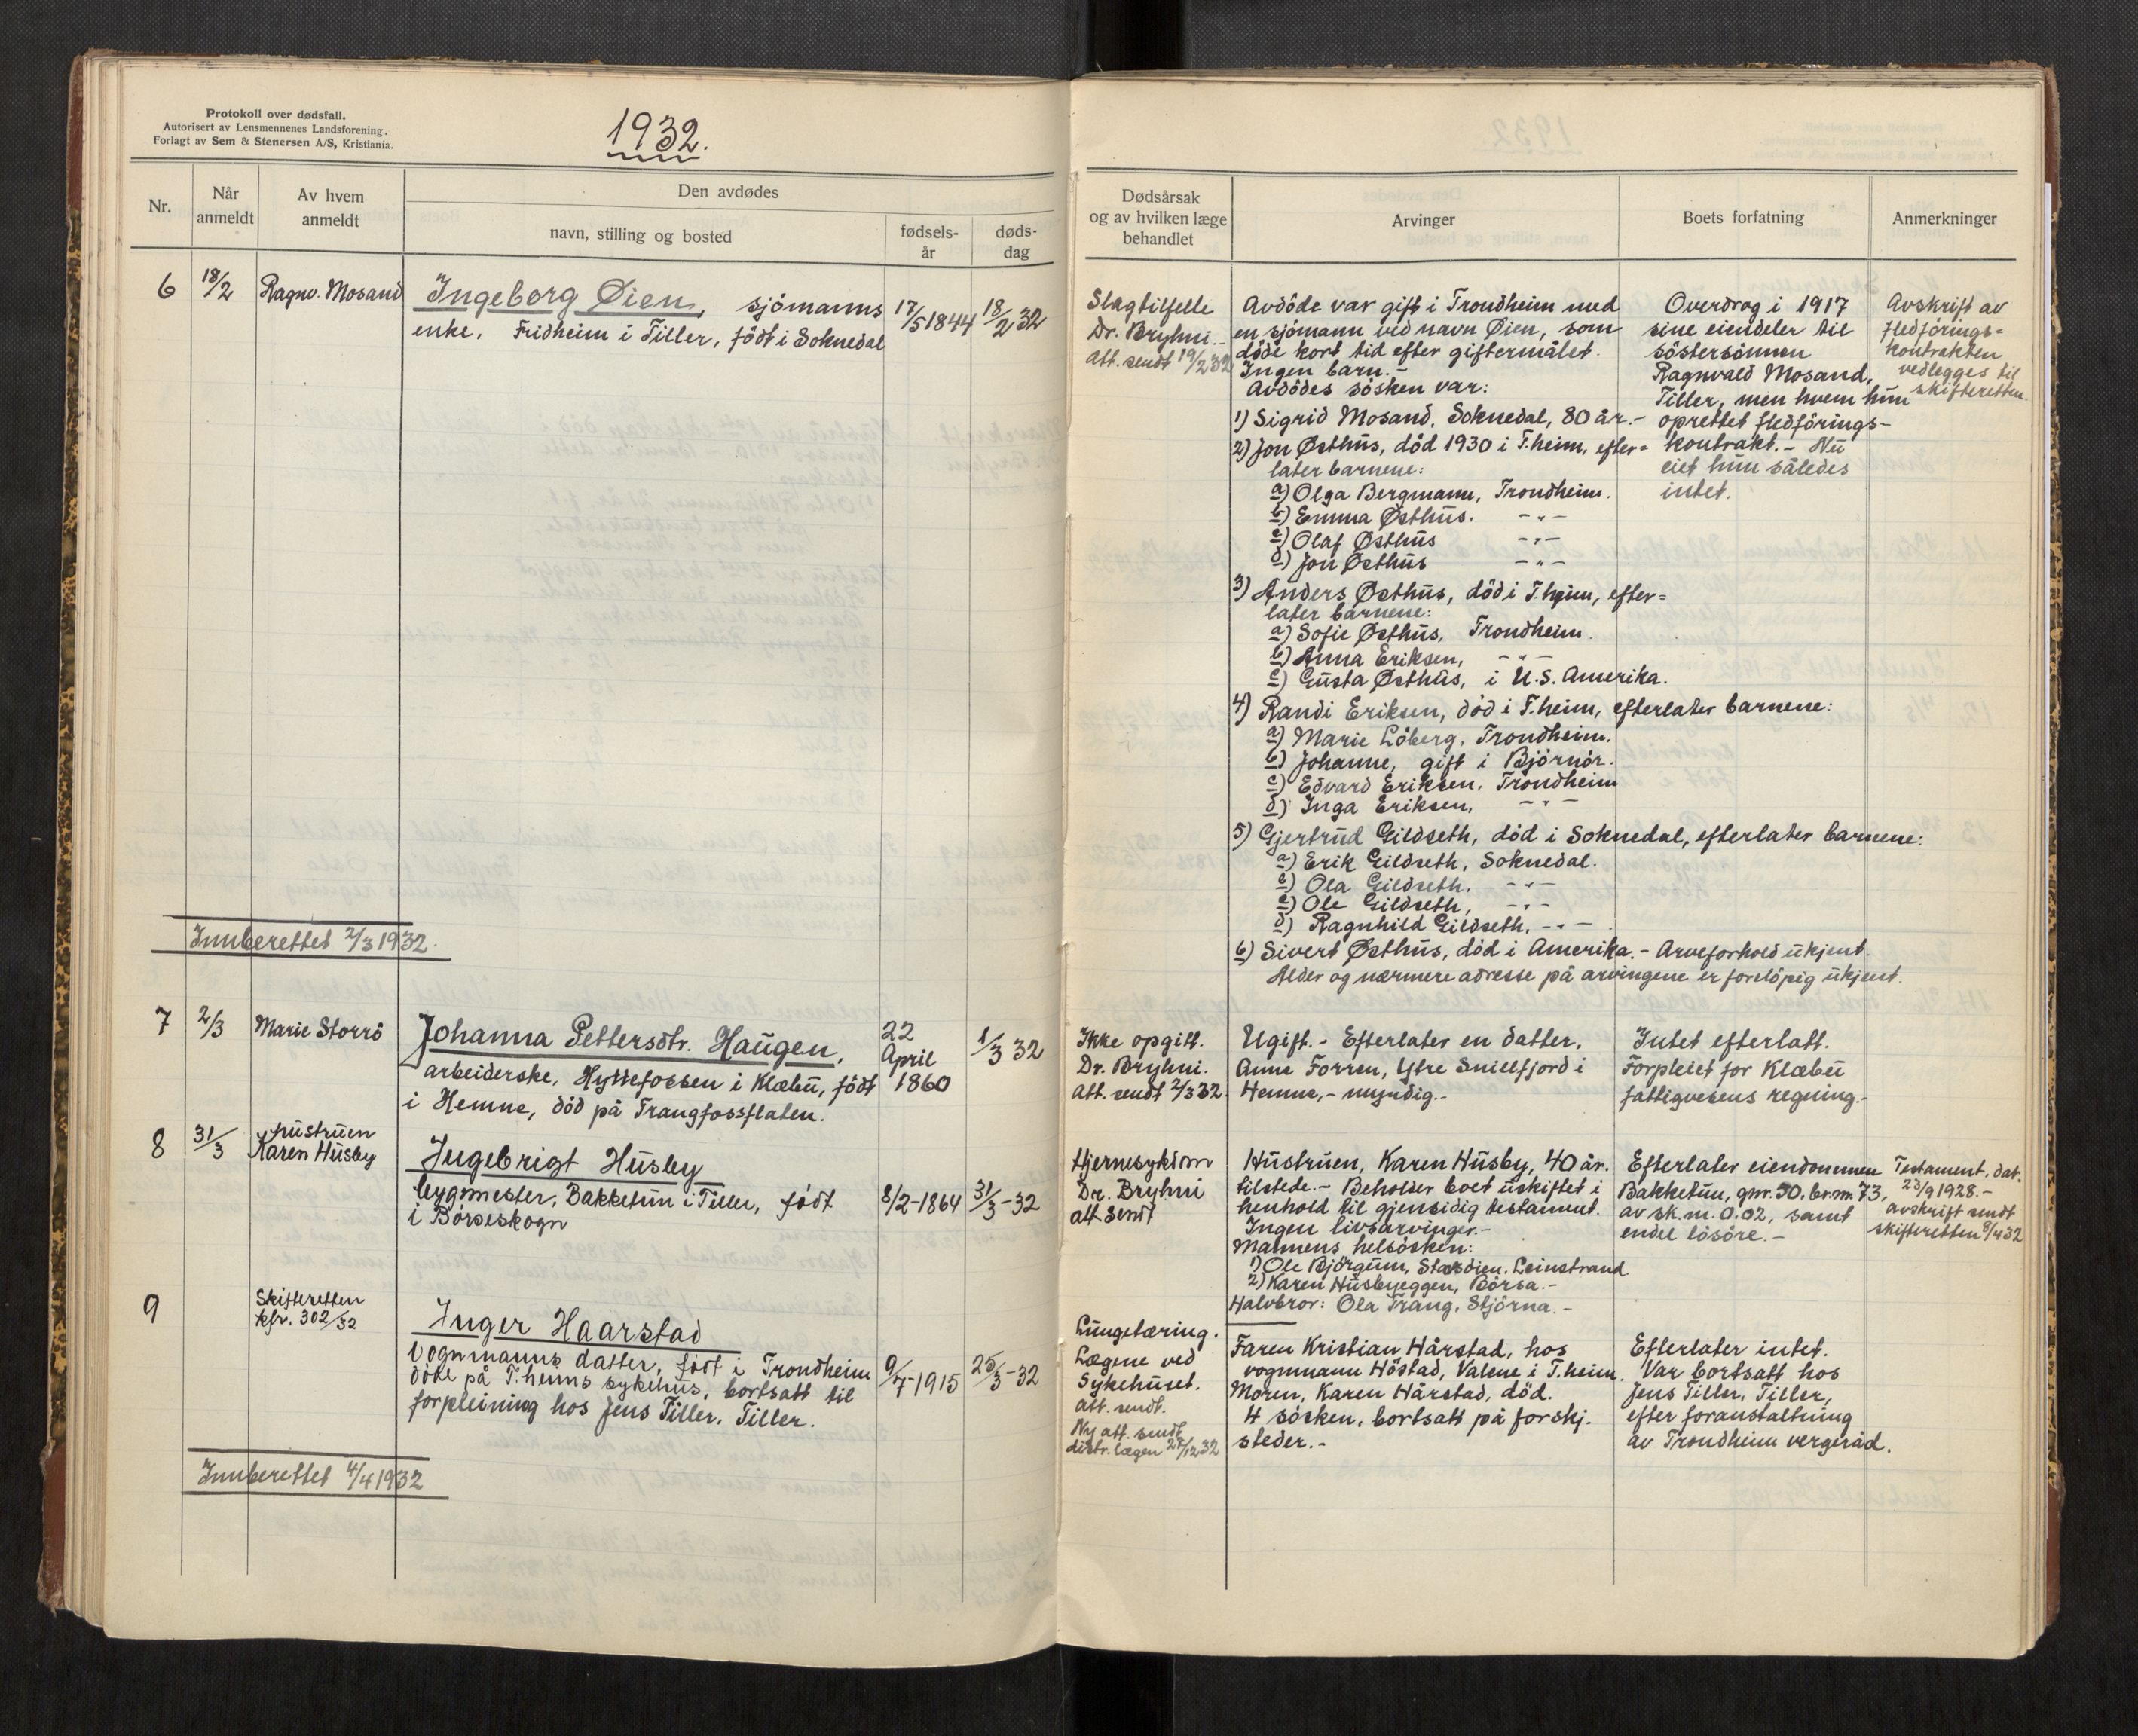 Protokoll over dødsfall.
Autorisert av Lensmennenes Landsforening.
Forlagt av Sem & Stenersen A/S, Kristiania.
1932.
Nr.
Når
anmeldt
Av hvem
anmeldt
Den avdødes
navn, stilling og bosted
fødsels-
år
døds-
dag
6
18/2
Ragnv. Mosand
Ingeborg Øien, sjömanns
enke, Fridheim i Tiller, födt i Soknedal
17/5 1844
18/2 32
Innberettet 2/3 1932.
7
2/3
Marie Storrö
Johanna Pettersdtr. Haugen,
arbeiderske, Hyttefossen i Klæbu, födt
i Hemne, död på Trangfossflaten.
22
April
1860
1/3 32
8
31/3
Hustruen
Karen Husby
Ingebrigt Husby
bygmester, Bakketun i Tiller, födt
i Börseskogn
8/2-1864
31/3-32
9
Skifteretten
kfr. 302/32
Inger Haarstad
vognmanns datter, födt i Trondheim
döde på T.heims sykehus, bortsatt til
forpleining hos Jens Tiller, Tiller.
9/7-1915
25/3-32
Innberettet 4/4 1932
Dødsårsak
og av hvilken læge
behandlet
Arvinger
Boets forfatning
Anmerkninger
Slagtilfelle
Dr. Bryhni.-
Att. sendt 19/2 32
Avdöde var gift i Trondheim med
en sjömann ved navn Øien, som
döde kort tid efter giftermålet.
Ingen barn.-
Avdödes sösken var:
1) Sigrid Mosand, Soknedal, 80 år.-
2) Jon Østhus, död 1930 i T.heim, efter=
later barnene:
a) Olga Bergmann, Trondheim.
b) Emma Østhus. -"-
c) Olaf Østhus -"-
d) Jon Østhus -"-
3) Anders Østhus, död i T.heim, efter=
later barnene:
a) Sofie Østhus, Trondheim.
b) Anna Eriksen, -"-
c) Gusta Østhus, i U.S. Amerika.
4) Randi Eriksen, död i T.heim, efterlater barnene:
a) Marie Löberg, Trondheim.
b) Johanne, gift i Björnör.
c) Edvard Eriksen, Trondheim
d) Inga Eriksen, -"-
5) Gjertrud Gildseth, död i Soknedal, efterlater barnene:
a) Erik Gildseth, Soknedal.
b) Ola Gildseth, -"-
c) Ole Gildseth, -"-
d) Ragnhild Gildseth, -"-
6) Sivert Østhus, död i Amerika.- Arveforhold ukjent.
Alder og nærmere adresse på arvingene er forelöpig ukjent.
Overdrog i 1917
sine eiendeler til
söstersönnen
Ragnvald Mosand,
Tiller, men hvem hun
oprettet fledförings-
kontrakt.- Nu
eiet hun således
intet.
Avskrift av
fledförings=
kontrakten
vedlegges til
skifteretten.
Ikke opgitt.
Dr. Bryhni.
Att. sendt 2/3 32
Ugift.- Efterlater en datter,
Anna Forren, Ytre Snillfjord i
Hemne,- myndig.-
Intet efterlatt.
Forpleiet for Klæbu
fattigvesens regning.-
Hjernesykdom
Dr. Bryhni
att. sendt
Hustruen, Karen Husby, 40 år.
tilstede.- Beholder boet uskiftet i
henhold til gjensidig testament.
Ingen livsarvinger.-
Mannens helsösken:
1) Ole Björgum, Stasdien, Leinstrand
2) Karen Husbyeggen, Börsa.-
Halvbror: Ola Trang, Stjörna.-
Efterlater eiendommen
Bakketun, gnr. 50, br.nr. 73,
av sk.m. 0.02, samt
endel lösöre.-
Testament. dat.
23/9 1928.-
avskrift sendt
skifteretten 8/4 32
Lungetæring.
Lægene ved
Sykehuset.
Att. sendt.
Ny att. sendt
distr.lægen 28/12 32
Faren Kristian Hårstad, hos
vognmann Höstad, Valene i T.heim.
Moren, Karen Hårstad, död.
4 sösken, bortsatt på forskj.
steder.-
Efterlater intet.
Var bortsatt hos
Jens Tiller, Tiller,
efter foranstaltning
av Trondheim vergeråd.